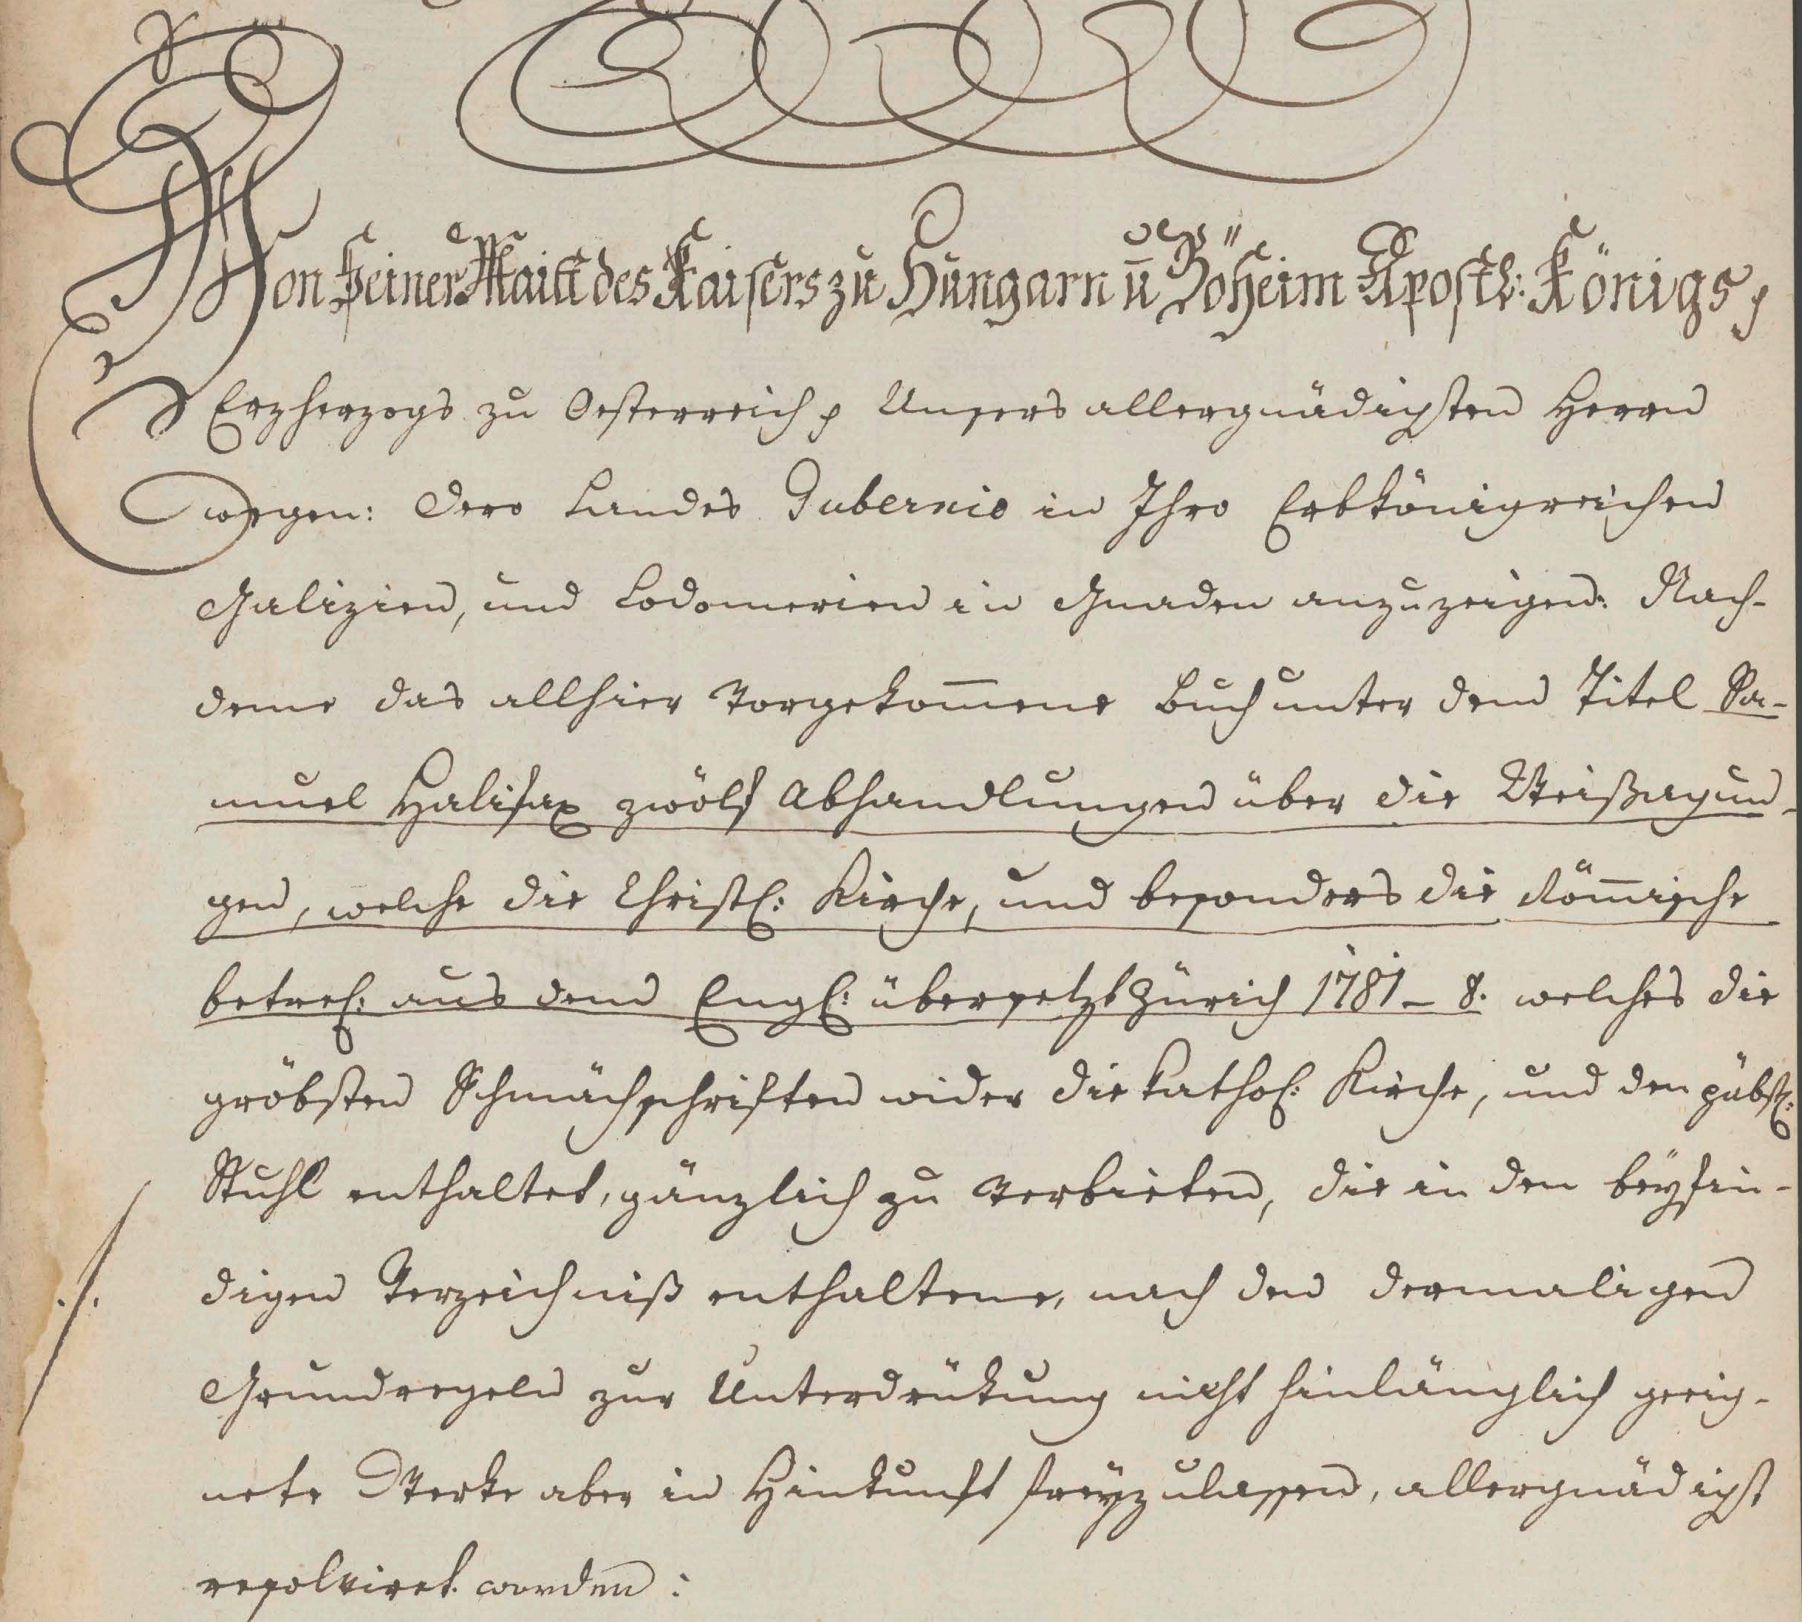 Von Seiner Maitt des Kaisers zu Hungarn u Böheim Apostl: Königs p
Erzherzogs zu Oesterreich p Unsers allergnädigsten Herrn
wegen: Dero Landes Gubernio in Ihro Erbkönigreichen
Galizien, und Lodomerien in Gnaden anzuzeigen: Nach-
deme das allhier vorgekom̅ene Buch unter dem Titel Sa-
muel Halifax zwölf Abhandlungen über die Weißagun-
gen, welche die Christl: Kirche, und besonders die Röm̅ische
betref: aus dem Engl: übersetzt Zürich 1781 – 8. welches die
gröbsten Schmächschriften wider die kathol: Kirche, und den päbstl:
Stuhl enthaltet, gänzlich zu verbieten, die in den beÿfin-
digen Verzeichniß enthaltene, nach den dermaligen
Grundregeln zur Unterdrükung nicht hinlänglich geeig-
nete Werke aber in Hinkunft freÿzulassen, allergnädigst
resolviret worden: